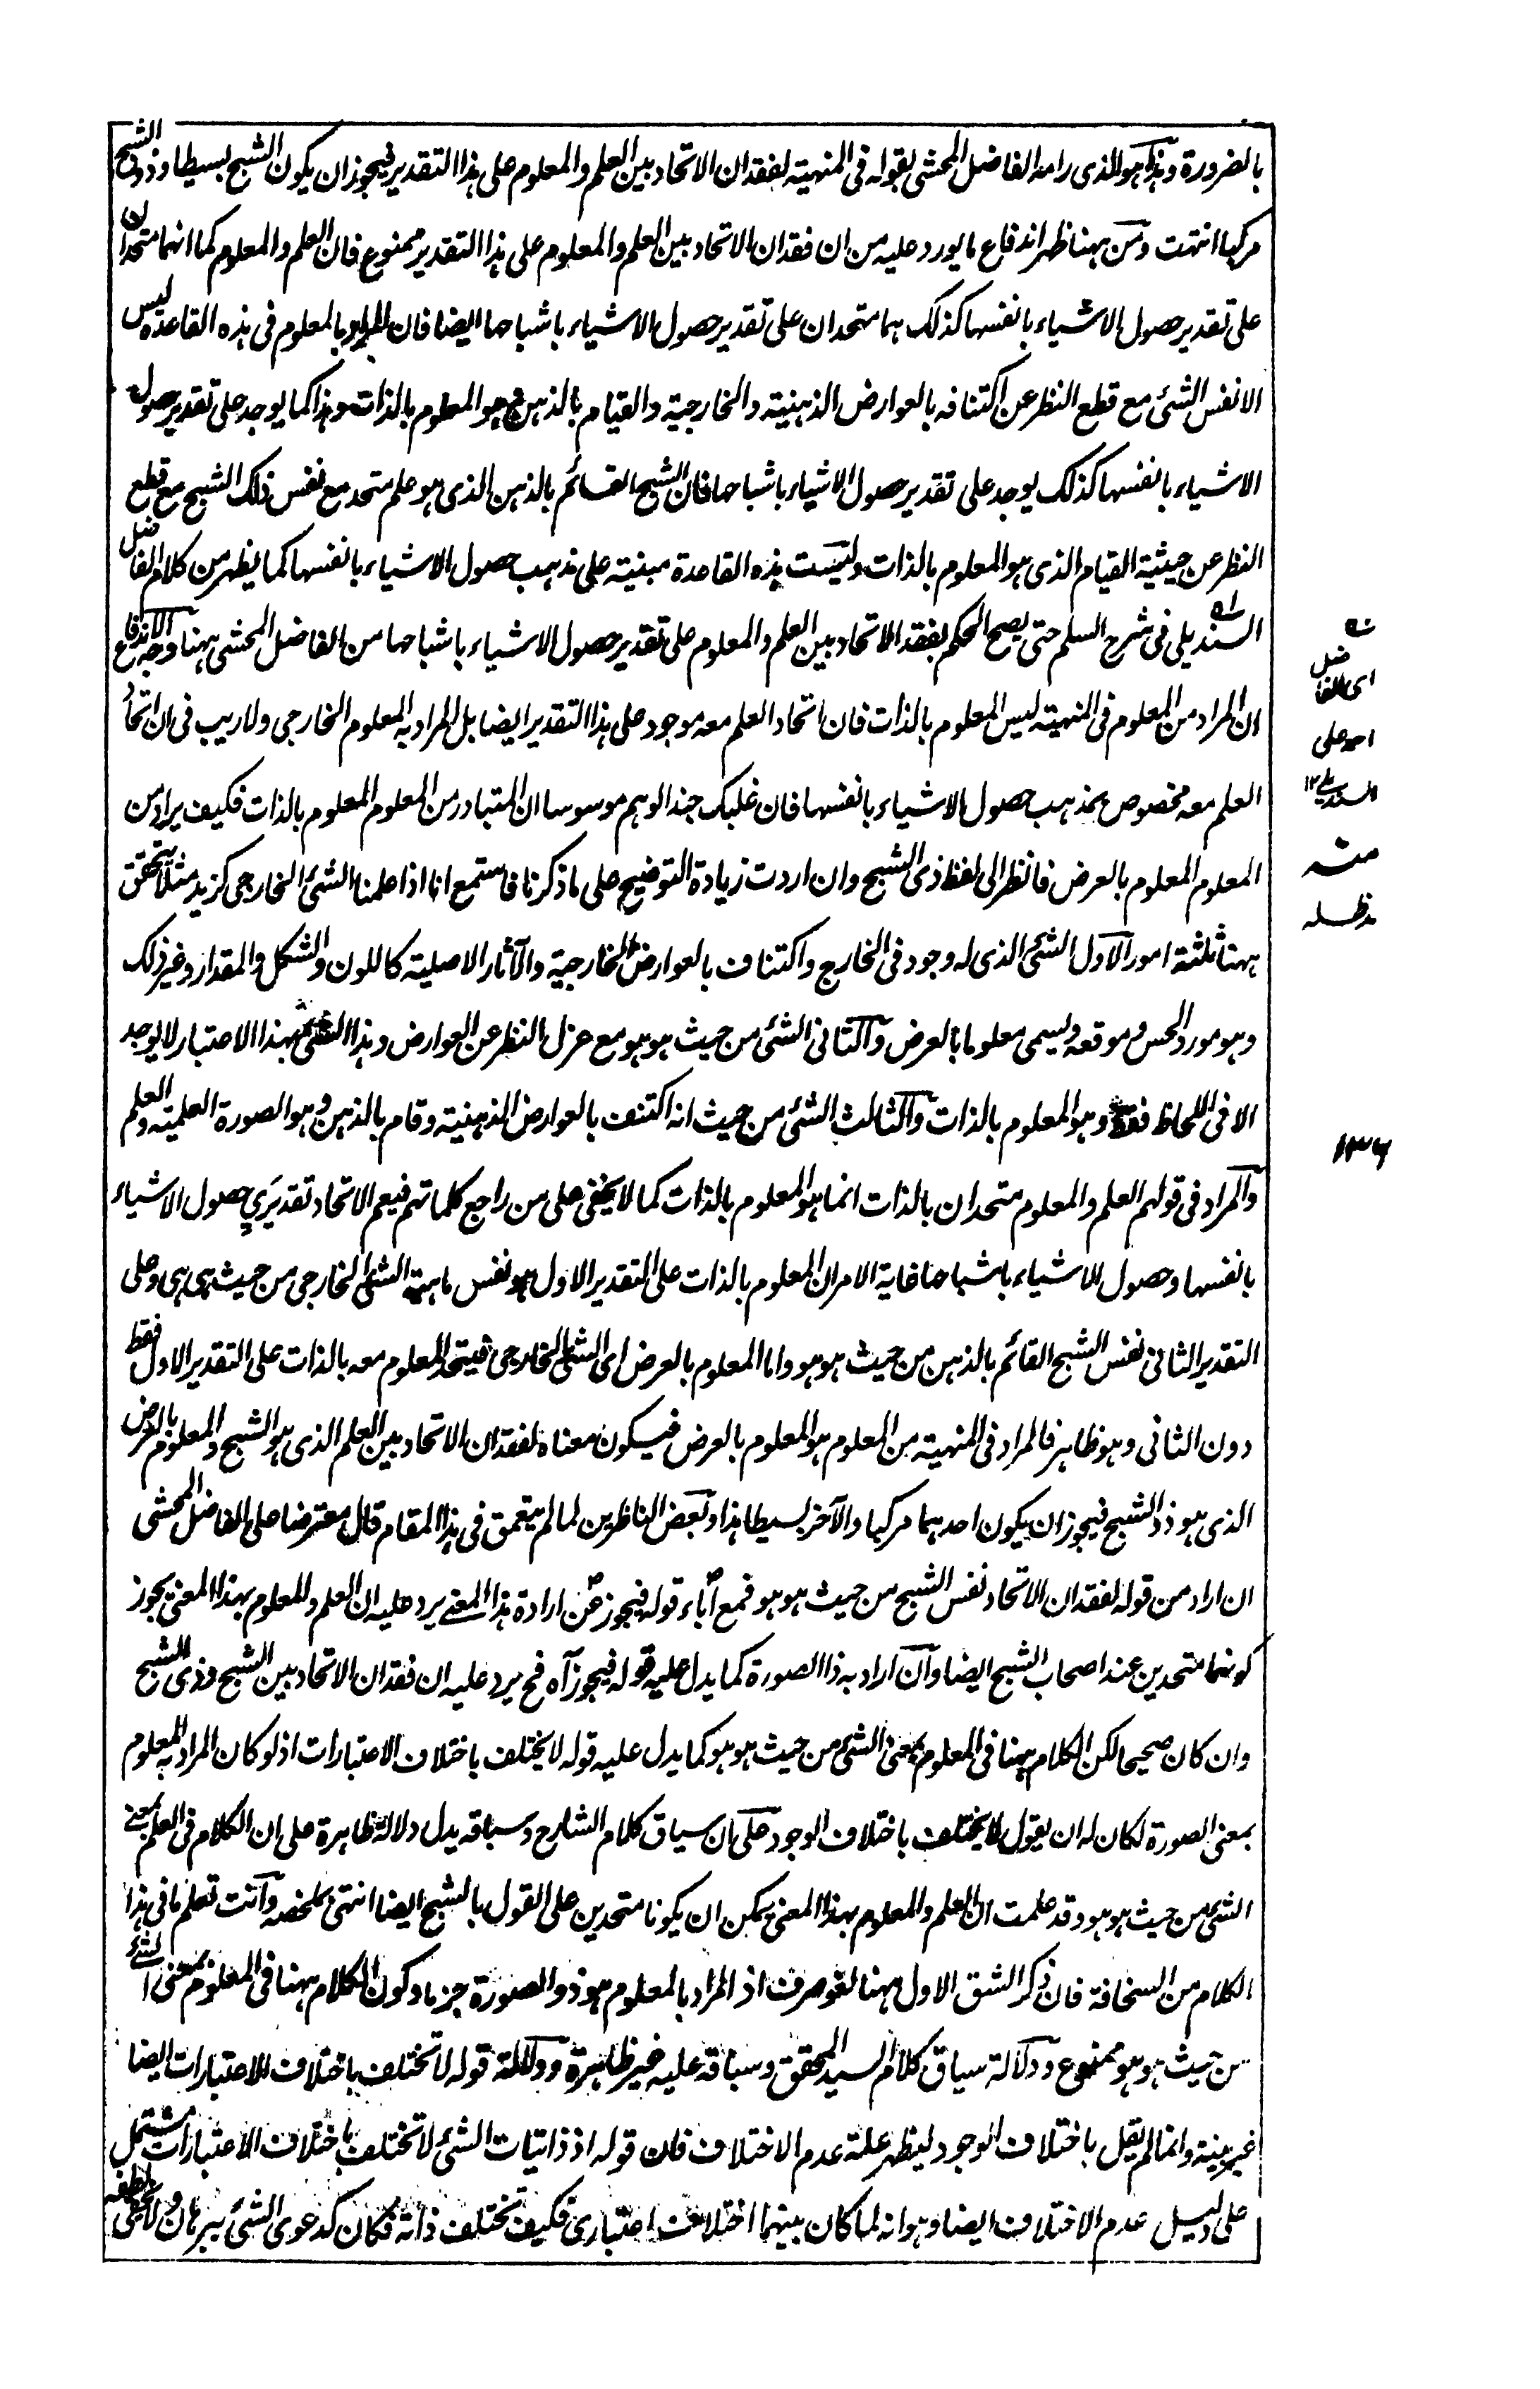 بالضرورة وهذا هو الذى رامه الفاضل المحشى بقوله فى المنهية لفقدان الاتحاد بين العلم والمعلوم على هذا التقدير فيجوز ان يكون الشبح بسيطا وذو الشبح
مركبا انتهت ومن ههنا ظهر اندفاع ما يورد عليه من ان فقدان الاتحاد بين العلم والمعلوم على هذا التقدير ممنوع فان العلم والمعلوم كما انهما متحدان
على تقدير حصول الاشياء بانفسها كذلك هما متحدان على تقدير حصول الاشياء باشباحها ايضا فان المراد بالمعلوم فى هذه القاعدة ليس
الا نفس الشئ مع قطع النظر عن اكتنافه بالعوارض الذهنية والخارجية والقيام بالذهن وهو المعلوم بالذات وهذا كما يوجد على تقدير حصول
الاشياء بانفسها كذلك يوجد على تقدير حصول الاشياء باشباحها فان الشبح القائم بالذهن الذى هو علم متحد مع نفس ذلك الشبح مع قطع
النظر عن حيثية القيام الذى هو المعلوم بالذات وليست هذه القاعدة مبنية على مذهب حصول الاشياء بانفسها كما يظهر من كلام الفاضل
السنديلى فى شرح السلم حتى يصح الحكم بفقد الاتحاد بين العلم والمعلوم على تقدير حصول الاشياء باشباحها من الفاضل المحشى ههنا وجه الاندفاع
ان المراد من المعلوم فى المنهية ليس المعلوم بالذات فان اتحاد العلم معه موجود على هذا التقدير ايضا بل المراد به المعلوم الخارجى ولا ريب فى ان اتحاد
العلم معه مخصوص بمذهب حصول الاشياء بانفسها فان غلبك جند الوهم موسوسا ان المتبادر من المعلوم المعلوم بالذات فكيف يراد من
المعلوم المعلوم بالعرض فانظر الى لفظ ذى الشبح وان اردت زيادة التوضيح على ما ذكرنا فاستمع انا اذا علمنا الشئ الخارجى كزيد مثلا يتحقق
ههنا ثلثة امور الاول الشئ الذى له وجود فى الخارج واكتناف بالعوارض الخارجية والآثار الاصلية كاللون والشكل والمقدار وغير ذلك
وهو مورد الحس وموقعه ويسمى معلوما بالعرض والثانى الشئ من حيث هو هو مع عزل النظر عن العوارض وهذا الشئ بهذا الاعتبار لا يوجد
الا فى اللحاظ فقط وهو المعلوم بالذات والثالث الشئ من حيث انه اكتنف بالعوارض الذهنية وقام بالذهن وهو الصورة العلمية والعلم
والمراد فى قولهم العلم والمعلوم متحدان بالذات انما هو المعلوم بالذات كما لا يخفى على من راجع كلماتهم فيعم الاتحاد تقديرى حصول الاشياء
بانفسها وحصول الاشياء باشباحها غاية الامر ان المعلوم بالذات على التقدير الاول هو نفس ماهية الشئ الخارجى من حيث هى هى وعلى
التقدير الثانى نفس الشبح القائم بالذهن من حيث هو هو واما المعلوم بالعرض اى الشئ الخارجى فيتحد المعلوم معه بالذات على التقدير الاول فقط
دون الثانى وهو ظاهر فالمراد فى المنهية من المعلوم هو المعلوم بالعرض فيكون معناه لفقدان الاتحاد بين العلم الذى هو الشبح والمعلوم بالعرض
الذى هو ذو الشبح فيجوز ان يكون احدهما مركبا والآخر بسيطا هذا وبعض الناظرين لما لم يتعمق فى هذا المقام قال معترضا على الفاضل المحشى
ان اراد من قوله لفقدان الاتحاد نفس الشبح من حيث هو هو فمع اباء قوله فيجوز عن ارادة هذا المعنے يرد عليه ان العلم والمعلوم بهذا المعنى يجوز
كونهما متحدين عند اصحاب الشبح ايضا وان اراد به ذا الصورة كما يدل عليه قوله فيجوز آه فح يرد عليه ان فقدان الاتحاد بين الشبح وذى الشبح
وان كان صحيحا لكن الكلام ههنا فى المعلوم بمعنى الشئ من حيث هو هو كما يدل عليه قوله لا يختلف باختلاف الاعتبارات اذ لو كان المراد به المعلوم
بمعنى الصورة لكان له ان يقول لا يختلف باختلاف الوجود على ان سياق كلام الشارح وسباقه يدل دلالة ظاهرة على ان الكلام فى العلم بمعنے
الشئ من حيث هو هو وقد علمت ان العلم والمعلوم بهذا المعنى يمكن ان يكونا متحدين على القول بالشبح ايضا انتهى ملخصه وانت تعلم ما فى هذا
الكلام من السخافة فان ذكر الشق الاول ههنا لغو صرف اذ المراد بالمعلوم هو ذو الصورة جزما وكون الكلام ههنا فى المعلوم بمعنى الشئ
من حيث هو هو ممنوع ودلالة سياق كلام السيد المحقق وسباقه عليه غير ظاهرة ودلالة قوله لا تختلف باختلاف الاعتبارات ايضا
غير بينة وانما لم يقل باختلاف الوجود ليظهر علة عدم الاختلاف فان قوله اذ ذاتيات الشئ لا تختلف باختلاف الاعتبارات مشتمل
على دليل عدم الاختلاف ايضا وهو انه لما كان بينهما اختلاف اعتبارى فكيف تختلف ذاته فكان كدعوى الشئ ببرهان ولا يخفى لطفه
اى الفاضل
احمد على
السنديلے ١٢
منه
مدظله
١٣٦